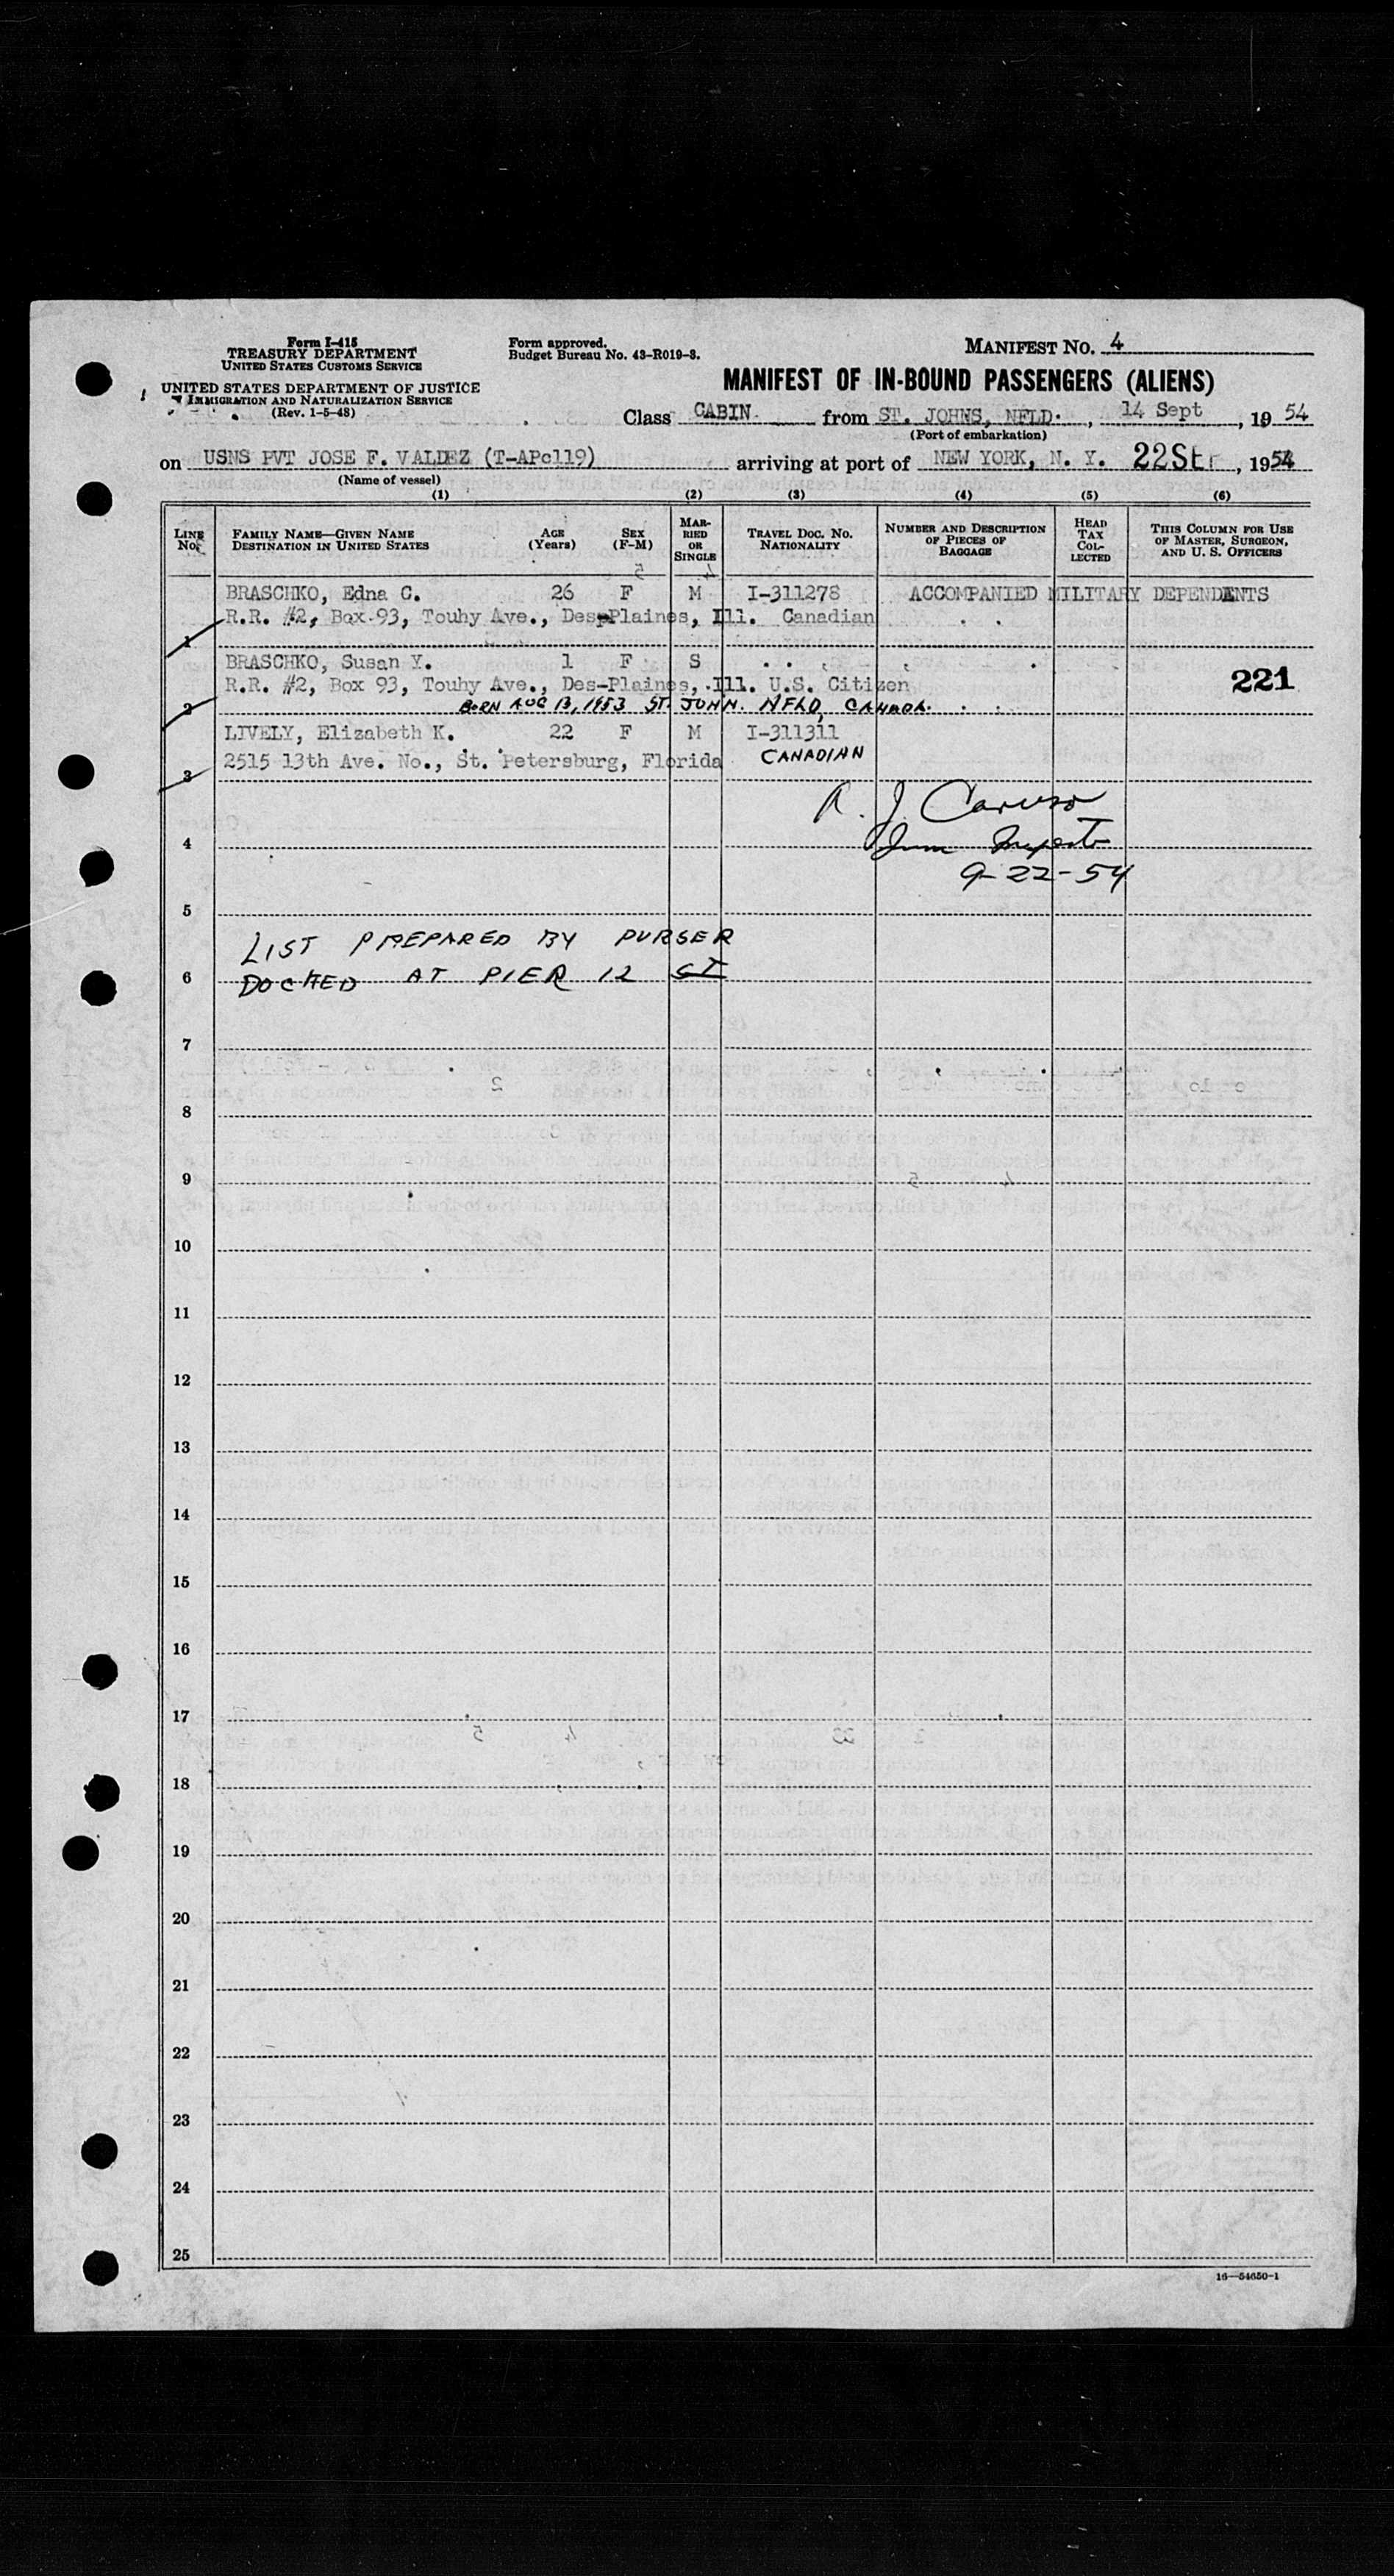 Form I-415
TREASURY DEPARTMENT
UNITED STATES CUSTOMS SERVICE
UNITED STATES DEPARTMENT OF JUSTICE
IMMIGRATION AND NATURALIZATION SERVICE
(Rev. 1-5-48)
Form approved.
Budget Bureau No. 43-R019-3.
MANIFEST NO. 4
MANIFEST OF IN-BOUND PASSENGERS (ALIENS)
Class CABIN from ST. JOHNS, NFLD. , 14 Sept , 19 54
(Port of embarkation)
on USNS PVT JOSE F. VALDEZ (T-APc119) arriving at port of NEW YORK, N. Y. 22 SEP , 1954
(Name of vessel)
(1) (2) (3) (4) (5) (6)
LINE No. FAMILY NAME—GIVEN NAME DESTINATION IN UNITED STATES AGE (Years) SEX (F-M) MARRIED OR SINGLE TRAVEL DOC. NO. NATIONALITY NUMBER AND DESCRIPTION OF PIECES OF BAGGAGE HEAD TAX COLLECTED THIS COLUMN FOR USE OF MASTER, SURGEON, AND U. S. OFFICERS
BRASCHKO, Edna C. 26 F M I-311278 ACCOMPANIED MILITARY DEPENDENTS
R.R. #2, Box 93, Touhy Ave., Des-Plaines, Ill. Canadian
1
BRASCHKO, Susan Y. 1 F S
R.R. #2, Box 93, Touhy Ave., Des-Plaines, Ill. U.S. Citizen 221
2 BORN AUG 13, 1953 ST. JOHN. NFLD, CANADA.
LIVELY, Elizabeth K. 22 F M I-311311
2515 13th Ave. No., St. Petersburg, Florida CANADIAN
3
R. J. Caruso
4 Imm Inspector
9-22-54
5
LIST PREPARED BY PURSER
6 DOCKED AT PIER 12 SI
7
8
9
10
11
12
13
14
15
16
17
18
19
20
21
22
23
24
25
16—54650-1